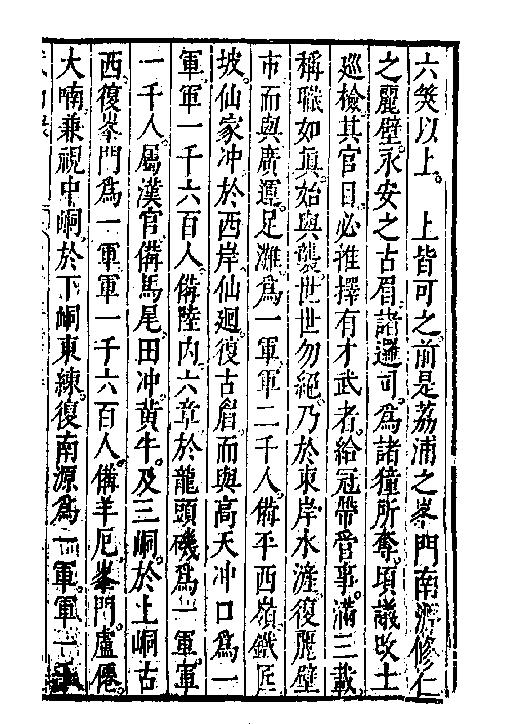 六筴以上。 上皆可之。前是荔浦之峯門南源修仁
之麗壁。永安之古眉。諸邏司。為諸獞所奪。項議改土
巡檢。其官目。必推擇有才武者。給冠帶管事。滿三載
稱職如真。始與襲。世世勿絕。乃於東岸水滻。復麗壁
市而與廣運。足灘為一軍。軍二千人。備平西嶺鐵匠
坡。仙家冲於西岸仙廻。復古眉而與高天冲口為一
軍。軍一千六百人。備陸內六章。於龍頭磯為一軍。軍
一千人。屬漢官。備馬尾田冲。黃牛。及三峒。於上峒古
西。復峯門為一軍。軍一千六百人。備羊厄。峯門。盧僊。
大喃。兼視中峒。於下峒東練。復南源為一軍。軍一千